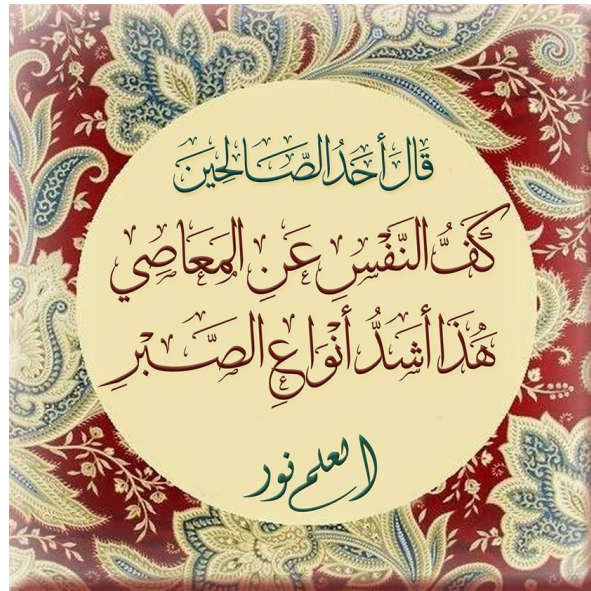 قَالَ أَحَدُ الصَّالِحِينَ
كَفُّ النَّفْسِ عَنِ المَعَاصِي
هَذَا أَشَدُّ أَنْوَاعِ الصَّبْرِ
العلم نور